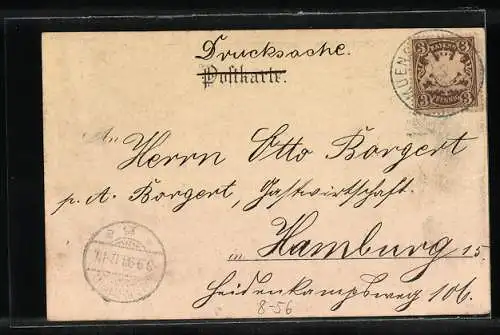 Drucksache.
Postkarte.
3 BAYERN 3
3 PFENNIG 3
An
Herrn Otto Borgert
p. A. Borgert, Gastwirtschaft.
in Hamburg 15.
Heidenkampsweg 106.
8-56